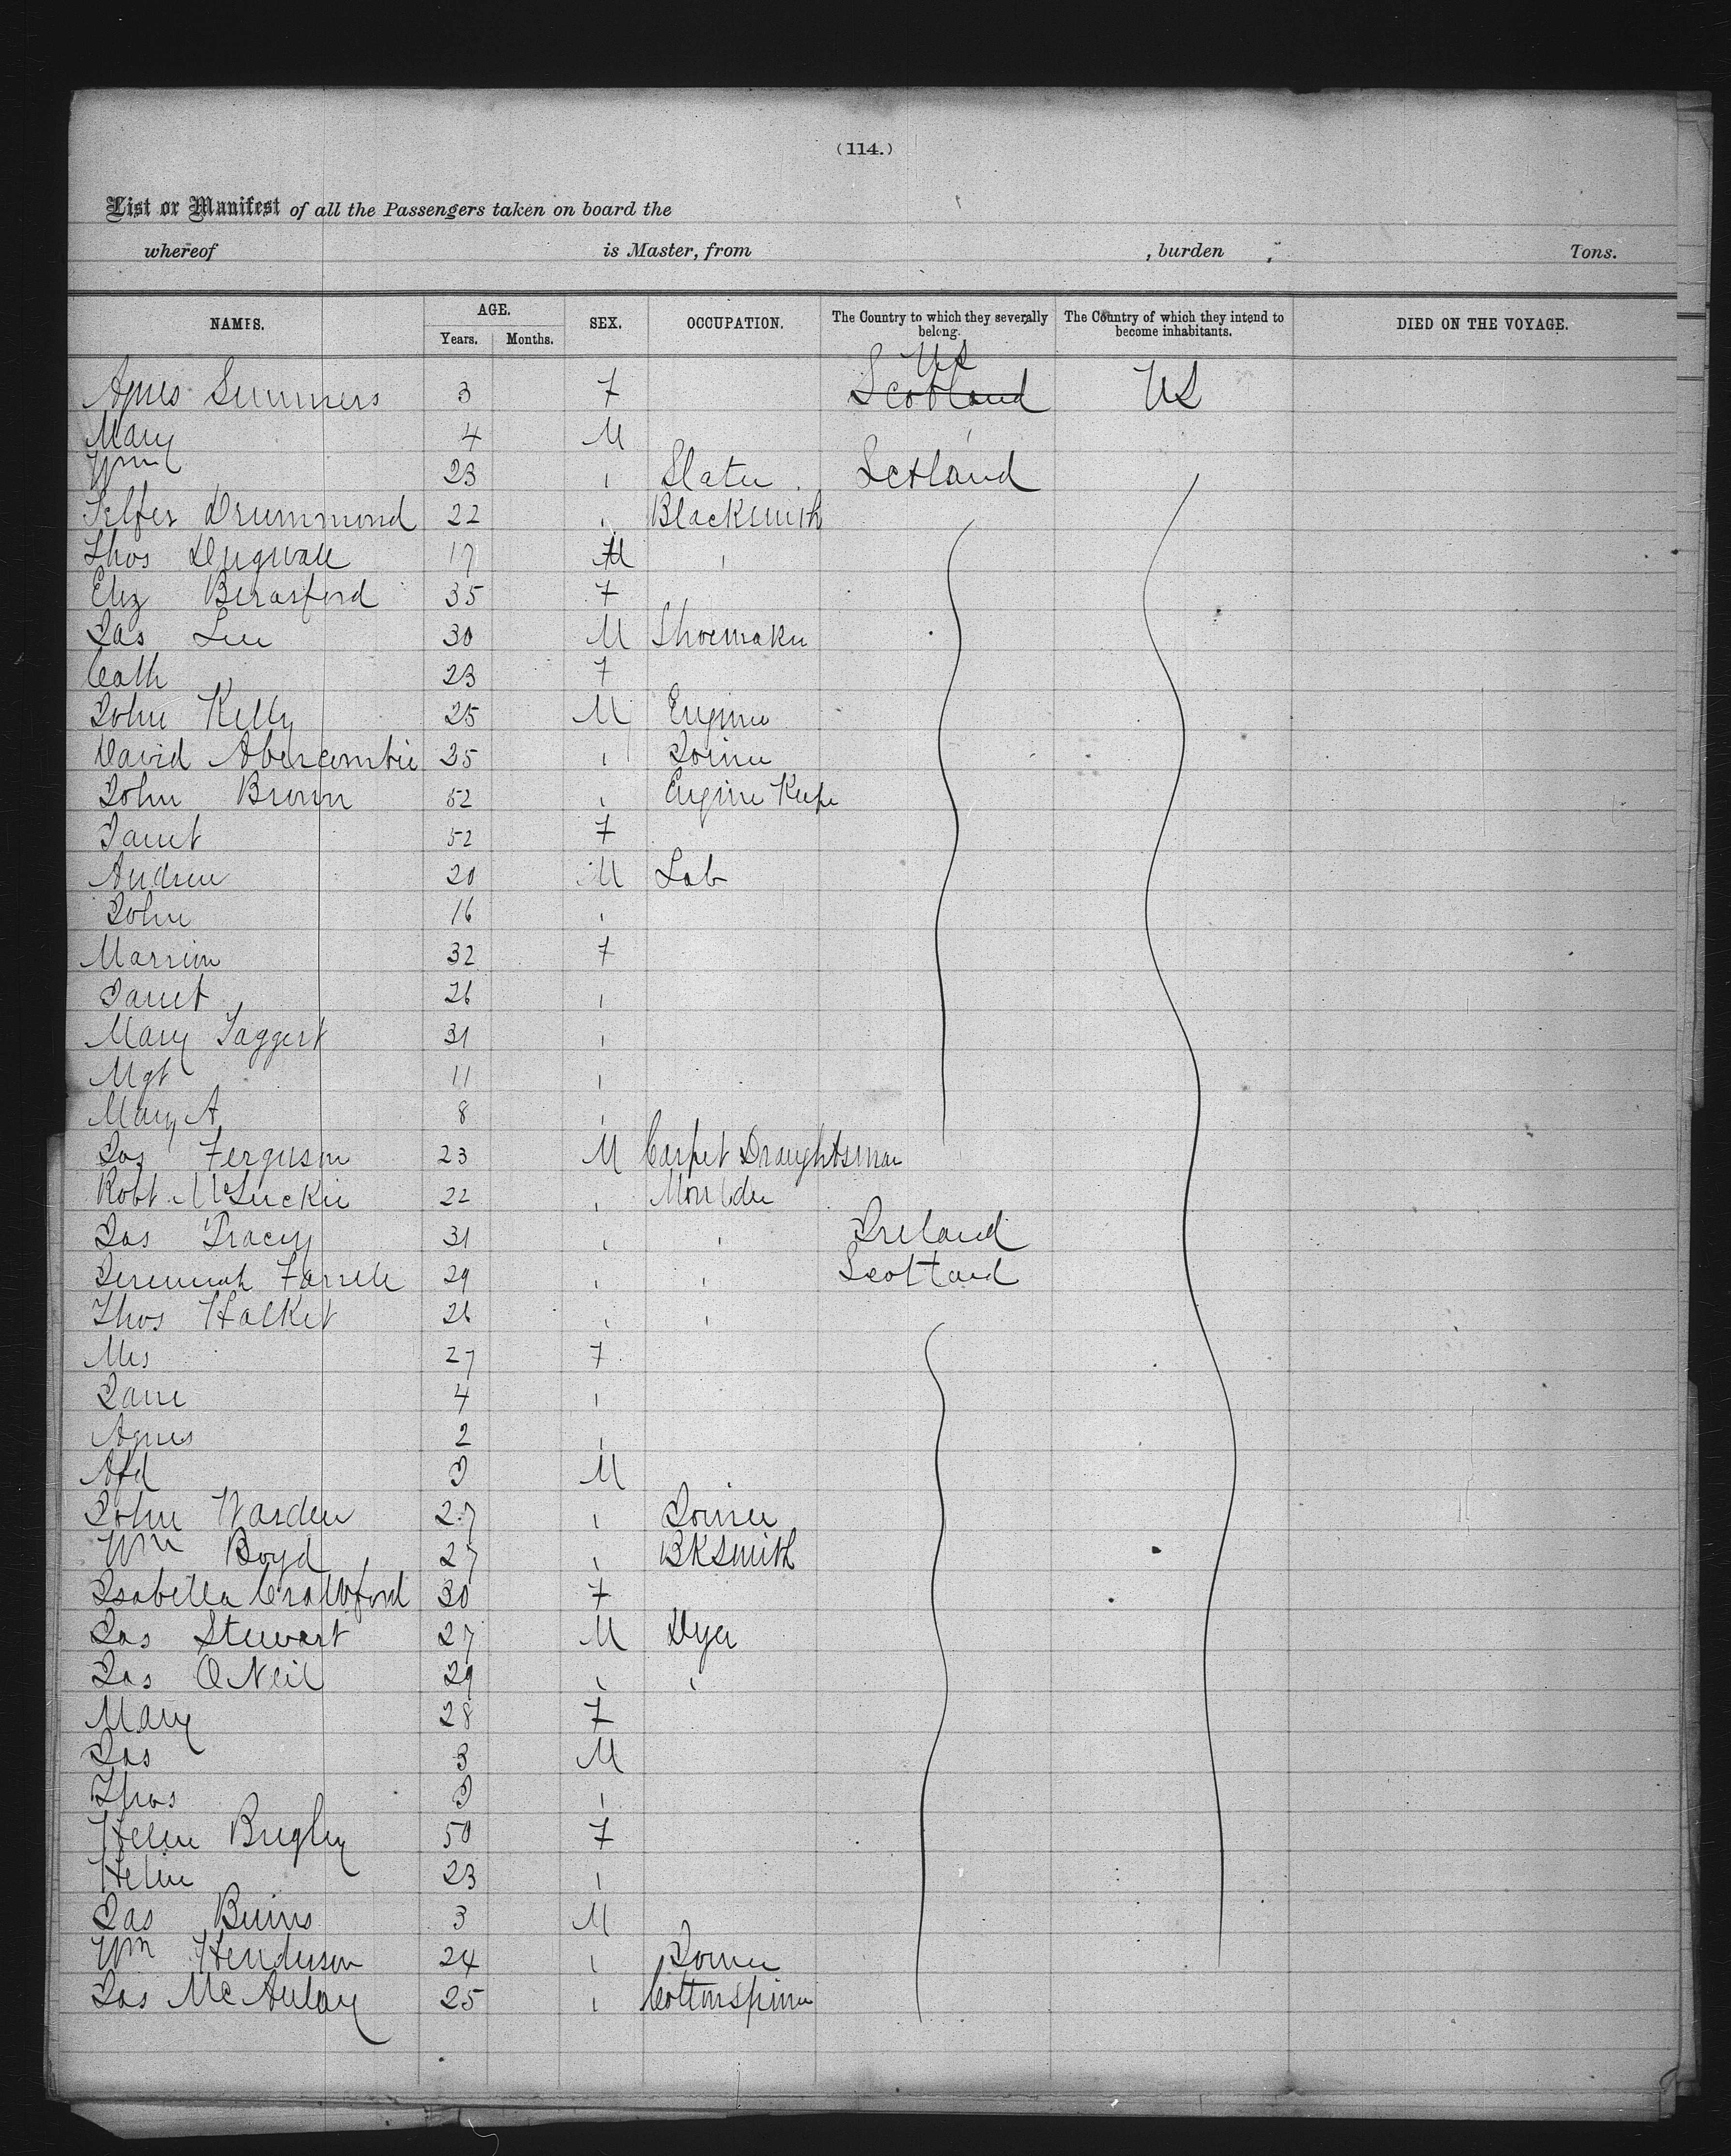 (114.)
List or Manifest of all the Passengers taken on board the
whereof is Master, from , burden , Tons.
NAMES. AGE. SEX. OCCUPATION. The Country to which they severally belong. The Country of which they intend to become inhabitants. DIED ON THE VOYAGE.
Years. Months.
US
Agnes Summers 3 F Scotland US
Mary 4 M
Wm 23 " Slater Scotland
Telfer Drummond 22 " Blacksmith
Thos Dugwall 17 M "
Eliz Berasford 35 F
Jas Lee 30 M Shoemaker
Cath 23 F
John Kelly 25 M Engineer
David Abercombie 25 " Joiner
John Brown 52 " Engine Keeper
Janet 52 F
Andrew 20 M Lab
John 16 "
Marrion 32 F
Janet 26 "
Mary Taggert 31 "
Mgt 11 "
Mary A 8 "
Jas Ferguson 23 M Carpet Draughtsman
Robt McLuckie 22 " Moulder
Jas Tracey 31 " " Ireland
Jeremiah Farrell 29 " " Scotland
Thos Halket 26 " "
Mrs 27 F
Jane 4 "
Agnes 2 "
Afd M
John Warden 27 " Joiner
Wm Boyd 27 " BKSmith
Isabella Crawford 30 F
Jas Stewart 27 M Dyer
Jas O'Neil 29 " "
Mary 28 F
Jas 3 M
Thos "
Helen Bugley 50 F
Helen 23 "
Jas Binns 3 M
Wm Henderson 24 " Joiner
Jas McAulay 25 " Cottonspinner